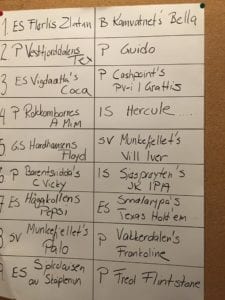 1. ES Florlis Zlatan
B Kamvatnet's Bella
2 P Vestfjorddalens Tex
P Guido
3 ES Vigdartha's Coca
P Cashpoint's Pv-i l Grattis
4 P Rokkomborres A Mim
IS Hercule ....
5 GS Hardhamens Floyd
SV Munkefjellet's Vill Iver
6 P Barentsvidda's C Vicky
IS Sjøsprøyten's JK IPA
7 ES Högakollens Pepsi
ES Smalarypa's Texas Hold'em
8 SV Munkefjellet's Palo
P Vakkerdalen's Frontline
9 ES av Støplerun
P Fred Flintstone